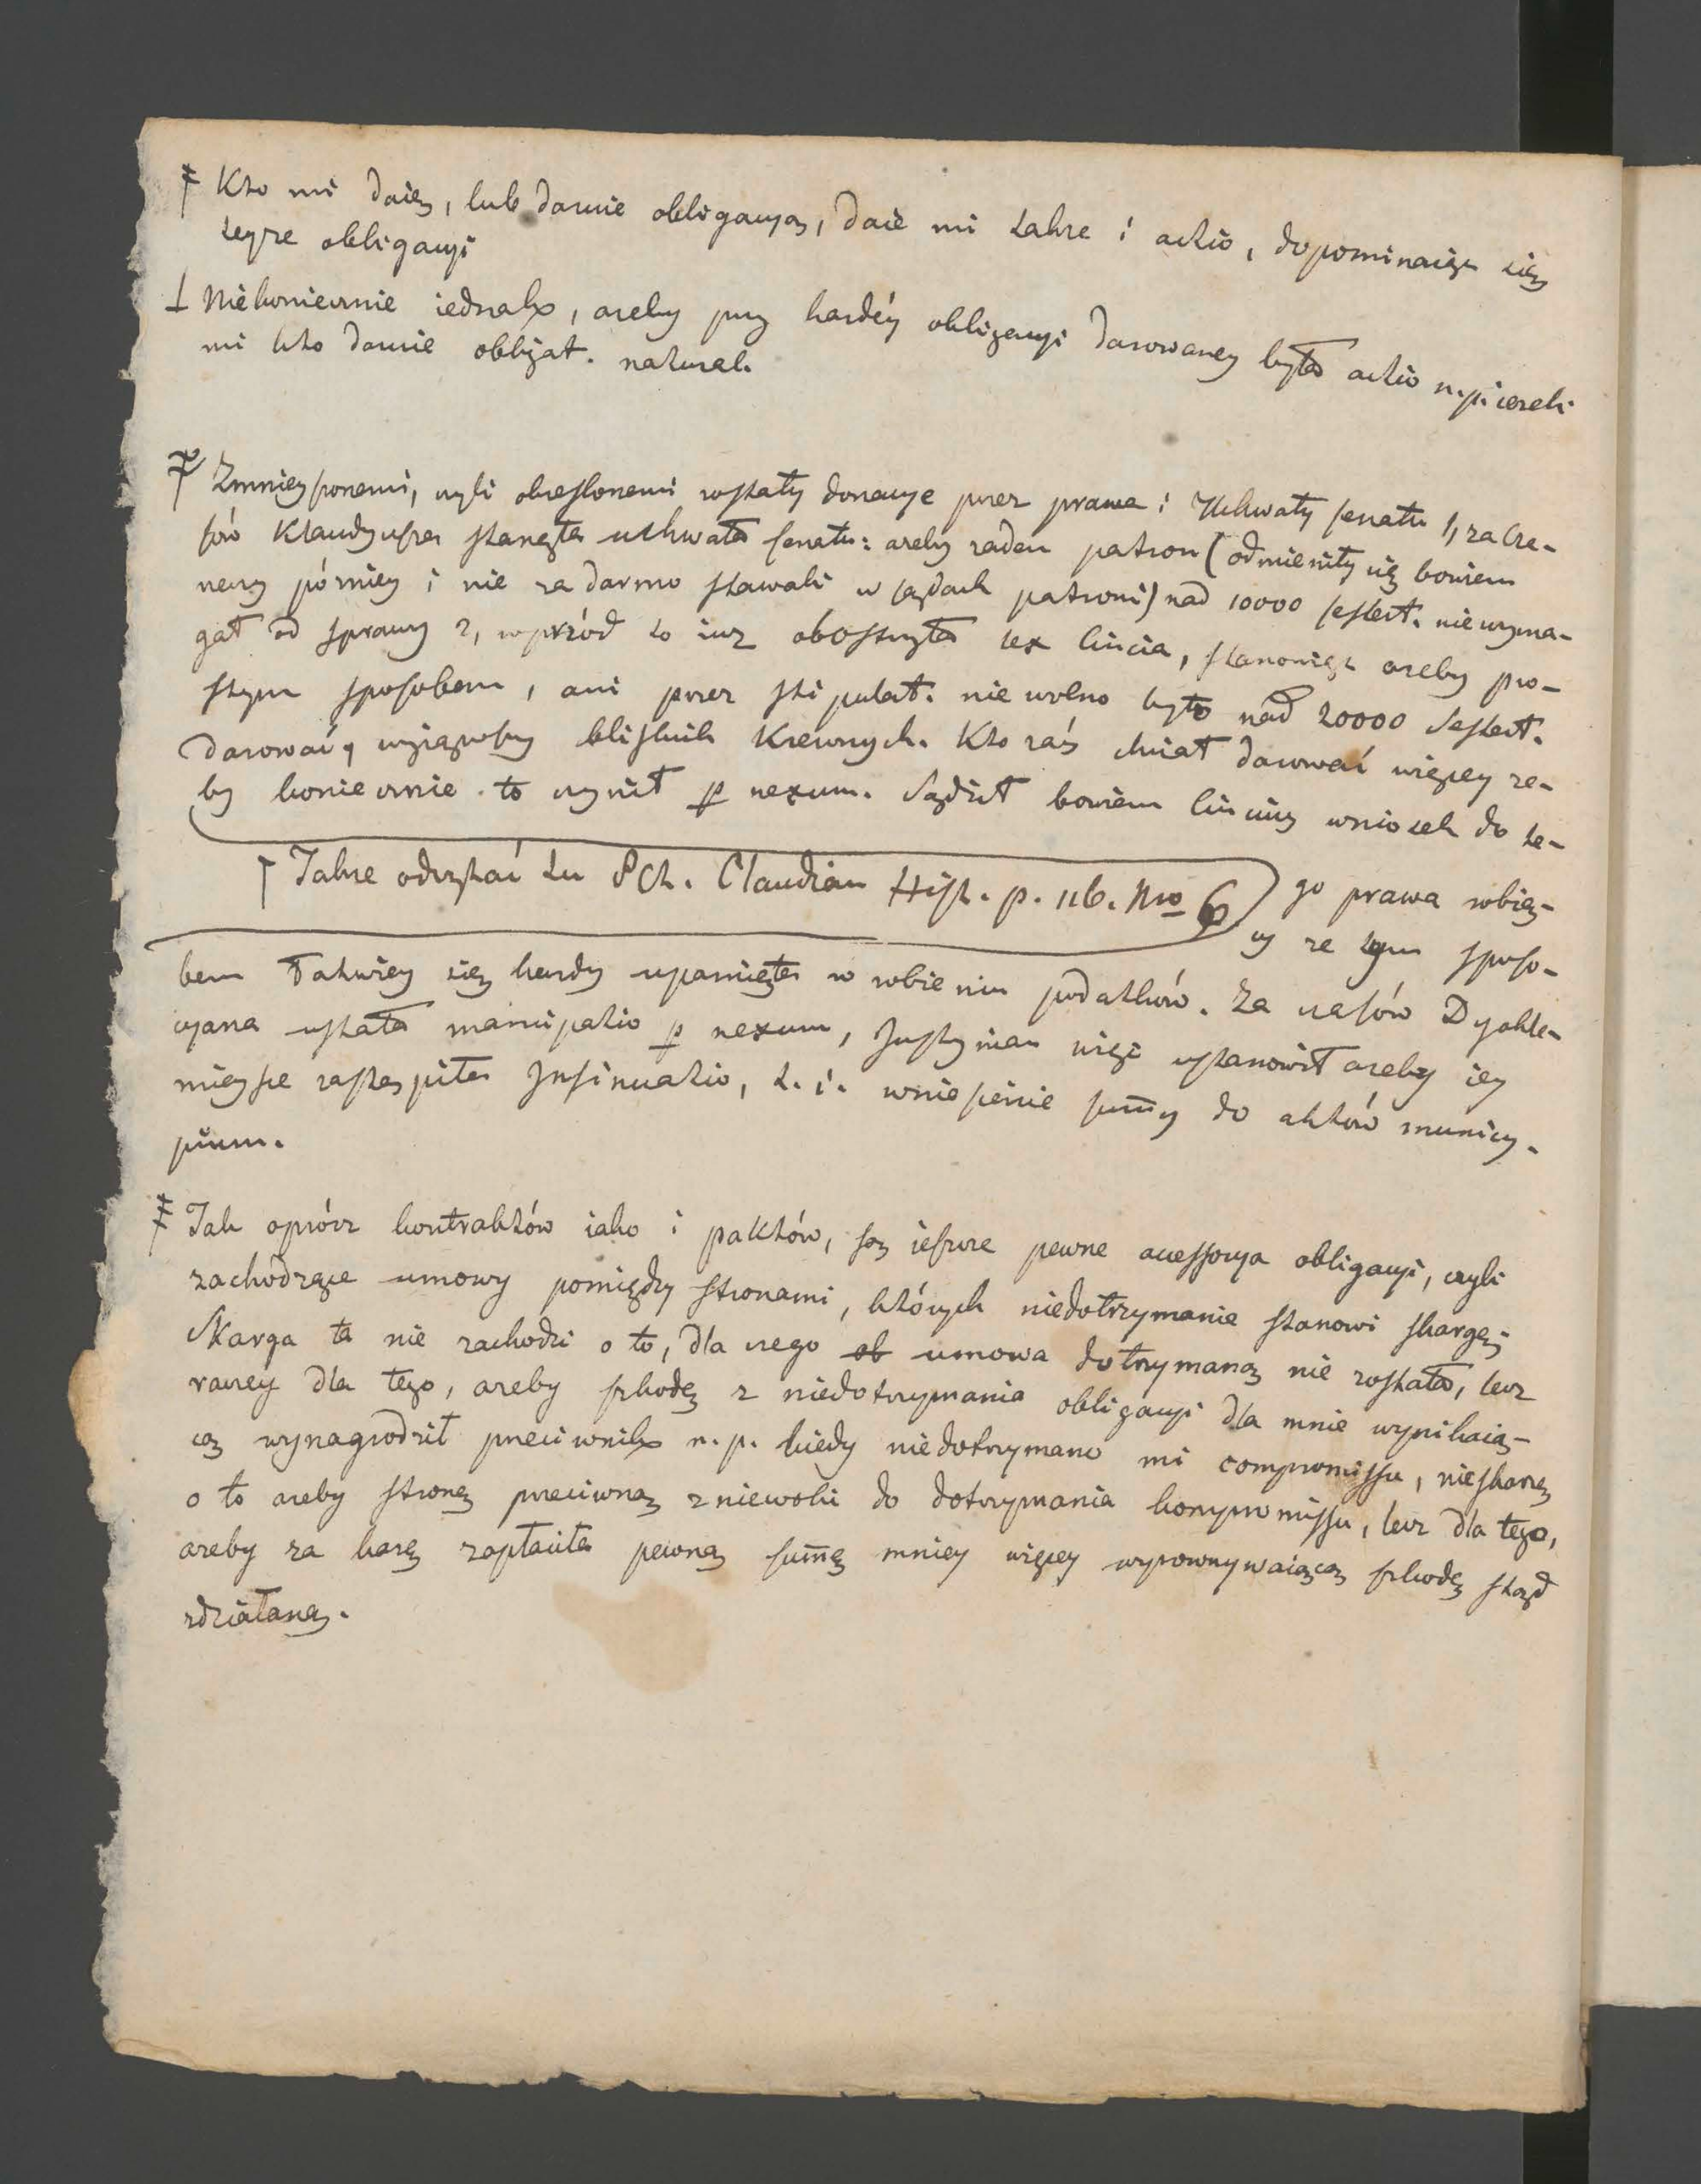 ‡ Kto mi daie, lub daruie obligacyą, daie mi także i actio, dopominaiąc się
teyże obligacyi
⊥ Niekoniecznie iednak, ażeby przy każdéy obligacyi darowaney była actio n.p. ieżeli
mi kto daruie obligat. natural.
‡ Zmnieyszonemi, czyli okreslonemi zostały donacye przez prawa i Uchwały senatu 1, za cza-
sów Klaudyusza stanęła uchwała senatu: ażeby żaden patron (odmieniły się bowiem
rzeczy póżniey i nie za darmo stawali w sądach patroni) nad 10000 sestert. niewyma-
gał od sprawy 2, wprzód to iuż obostrzyła lex Cincia, stanowiąc ażeby pro-
stym sposobem, ani przez stipulat. nie wolno było nad 20000 Sestert.
darować, wyiąwszy blizkich Krewnych. Kto zaś chciał darować więcey że-
by koniecznie to czynił p nexum. Sądził bowiem Cinciusz wniosek do te-
† Także odczytać tu SCt. Claudian Hist. p. 116. Nro 6
go prawa robią-
cy że tym sposo-
bem Łatwiey się każdy upamięta w robieniu podatków. Za czasów Dyokle-
cyana ustała mancipatio p nexum, Justynian więc ustanowił ażeby iey
mieysce zastąpiła Insinuatio, t. i. wniesienie sum̄y do aktów municy-
pium.
‡ Jak oprócz kontraktów iako i paktów, są ieszcze pewne accessorya obligacyi, czyli
zachodzące umowy pomiędzy stronami, których niedotrzymanie stanowi skargę;
Skarga ta nie zachodzi o to, dla czego ob umowa dotrzymaną nie została, lecz
raczey dla tego, ażeby szkodę z niedotrzymania obligacyi dla mnie wynikaią-
cą wynagrodził przeciwnik n. p. kiedy niedotrzymano mi compromissu, nieskarżę
o to ażeby stronę przeciwną zniewolić do dotrzymania kompromissu, lecz dla tego,
ażeby za karę zapłaciła pewną sum̄ę mniey więcey wyrownywaiącą szkodę stąd
zdziałaną.